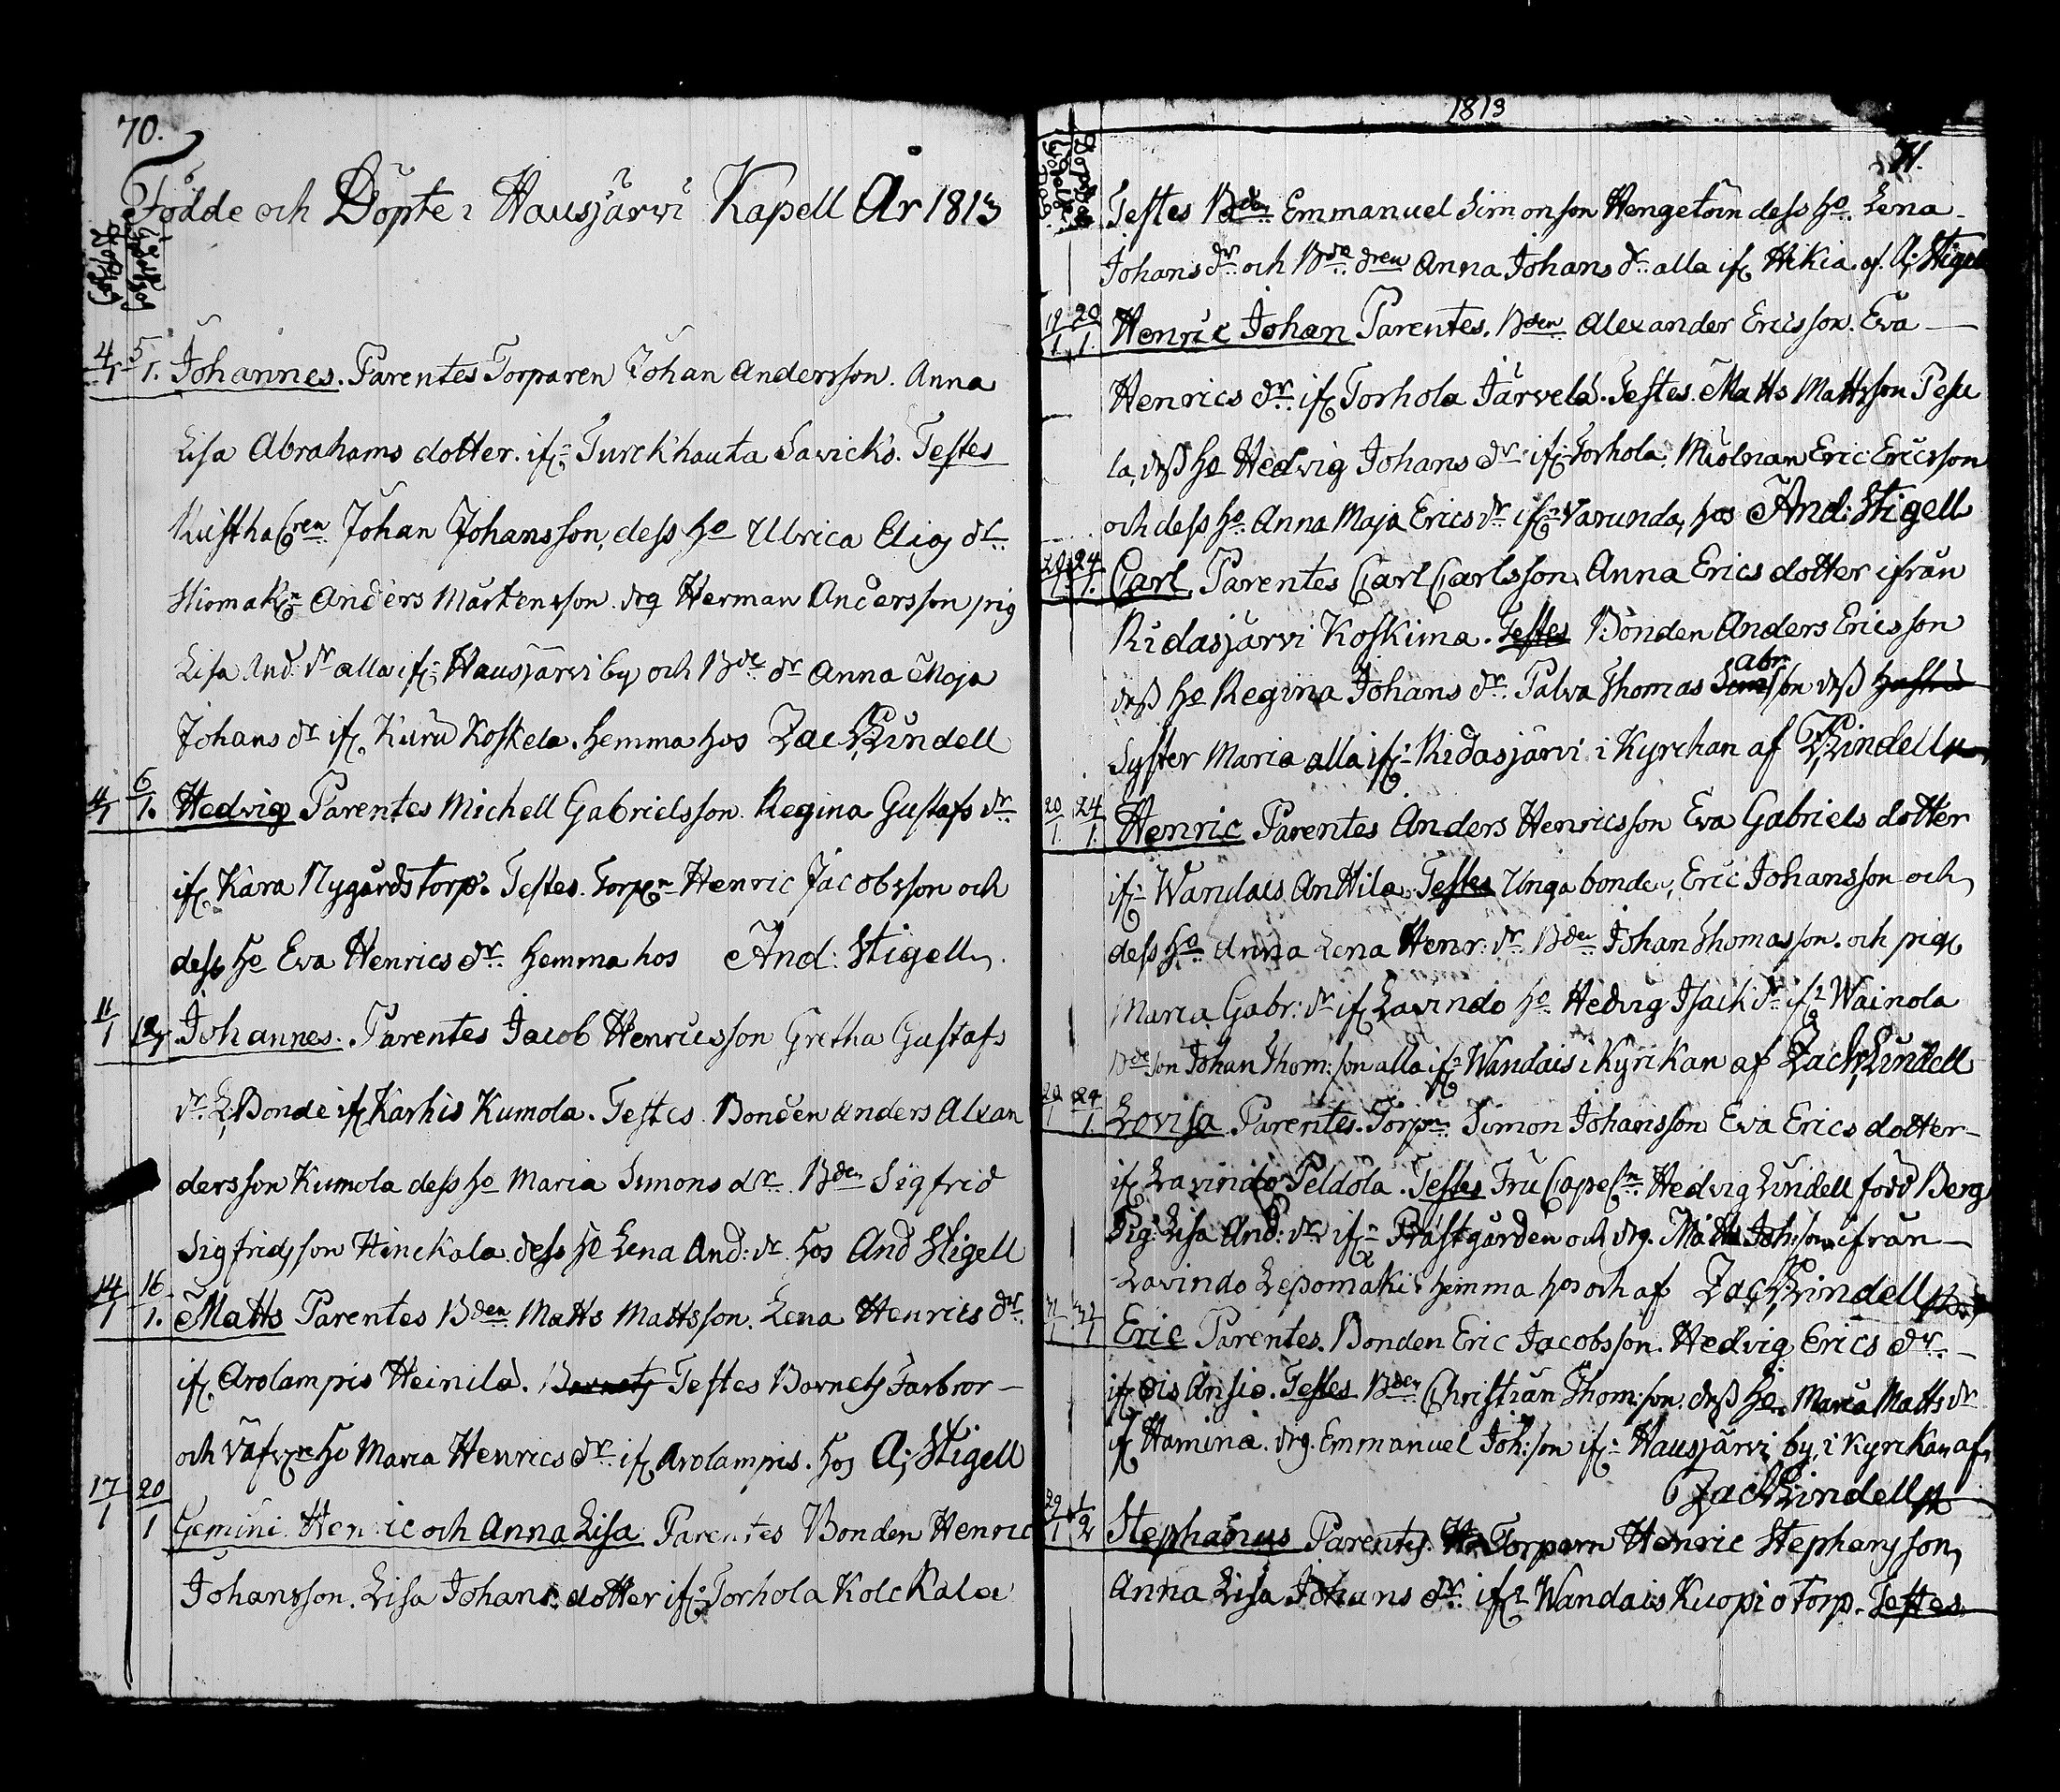 70.
Födde och Döpte i Hausjärvi Kapell År 1813
4/1 5/1. Johannes. Parentes Torparen Johan Andersson. Anna
Lisa Abrahams dotter. ifr: Turckhauta Savickő. Testes
Johan Johansson, dess ho Ulrica Elias dr
Anders Mårtensson. drg Herman Andersson pig
Lisa And: dr alla ifr: Hausjärvi by och Bde dr Anna Maja
Johans dr ifr. Kuru Koskela. hemma hos Zach Lindell
4/1 6/1. Hedvig Parentes Michell Gabrielsson. Regina Gustafs dr
ifr Kara Nygårdstorp. Testes. Torpn Henric Jacobsson och
dess ho Eva Henrics dr. hemma hos And: Stigell.
11/1 12/1 Johannes. Parentes Jacob Henricsson Gretha Gustafs
dr. Bonde ifr Karhis Kumola. Testes. Bonden Anders Alexan
dersson Kumola dess ho Maria Simons dr. Bden Sigfrid
Sigfridsson Hinckala dess ho Lena And: dr. hos And Stigell
14/1 16/1. Matts Parentes Bden Matts Mattsson. Lena Henrics dr
ifr. Arolampis Heinilä. Barnets Testes Barnets Farbror
och ho Maria Henrics dr. ifr Arolampis. hos A: Stigell
17/1 20/1 Gemini Henric och Anna Lisa Parentes Bonden Henric
Johansson. Lisa Johans dotter ifr: Torhola Kolckala
1813
71.
Testes Bden Emmanuel Simonson Hengetoin dess ho. Lena
Johans dr. och Bde dren Anna Johans dr. alla ifr Hikia. af. A: Stigell
19/1 20/1. Henric Johan Parentes. Bden Alexander Ericsson. Eva
Henrics dr. ifr Torhola Järvelä. Testes. Matts Mattsson Pesu
la, dess ho Hedvig Johans dr ifr Torhola, Miölnaren Eric Ericsson
och dess ho. Anna Maja Erics dr ifrn Varunda, hos And: Stigell
20/1 24/1. Carl Parentes Carl Carlsson, Anna Erics dotter ifrån
Ridasjärvi Koskima. Testes Bonden Anders Ericsson
dess ho Regina Johans dr. Palva Thomas abr:son dess hustru
Syster Maria alla ifr: Ridasjärvi i Kyrckan af Z Lindell
20/1. 24/1. Henric Parentes Anders Henricsson Eva Gabriels dotter
ifr: Wandais Anttila. Testes Unga bonden, Eric Johansson och
dess ho Anna Lena Henr: dr. Bden Johan Thomasson. och pig
Maria Gabr: dr ifr Lavindo ho. Hedvig Isack dr ifr: Wainola
Bde son Johan Thom:son alla ifr: Wandais i Kyrckan af Zach: Lindell
20/1 24/1. Lovisa Parentes. Torpn. Simon Johansson Eva Erics dotter
ifr Lavindo Peldola. Testes Fru Hedvig Lindell född Berg
Pig: Lisa And: dr ifrn Prästgården och drg. Matts Joh:son ifrån
Lavindo Leppomäki hemma hos och af Zach Lindell
Eric Parentes. Bonden Eric Jacobsson. Hedvig Erics dr.
ifr Ois Ansio. Testes Bden Christian Thom:son. dess ho. Maria Matts dr
ifr Hamina. drg. Emmanuel Joh:son ifr: Hausjärvi by, i Kyrckan af
Zach Lindell
29/1 1/2 Stephanus Parentes. Torparn Henric Stephansson,
Anna Lisa Johans dr. ifr: Wandais Kuopio torp. Testes